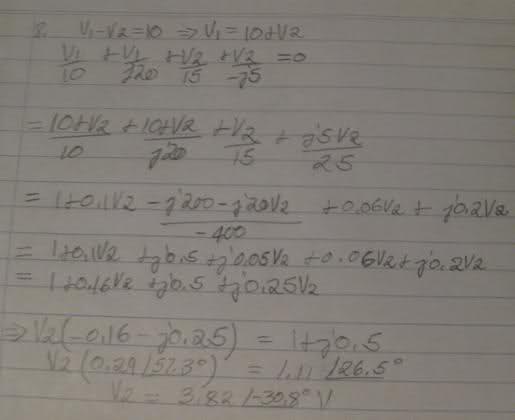 8. V1-V2=10 ⇒ V1=10+V2
V1/10 + V1/j20 + V2/15 + V2/-j5 = 0
= 10+V2/10 + 10+V2/j20 + V2/15 + j5V2/25
= 1+0.1V2 - j200-j20V2/-400 + 0.06V2 + j0.2V2
= 1+0.1V2 + j0.5 + j0.05V2 + 0.06V2 + j0.2V2
= 1+0.16V2 + j0.5 + j0.25V2
⇒ V2(-0.16 - j0.25) = 1+j0.5
V2(0.29∠57.3°) = 1.11∠26.5°
V2 = 3.82∠-30.8° V